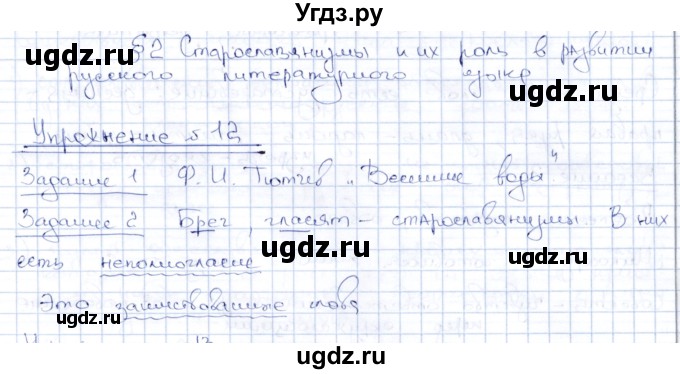 Угдз.ру
§ 2 Старославянизмы и их роль в развитии
русского литературного языка
ugdz.ru ugdz.ru
Упражнение № 12
ugdz.ru
Задание 1 Ф. И. Тютчев „Весенние воды"
Задание 2 Брег, гласят – старославянизмы. В них
ugdz.ru ugdz.ru
есть неполногласие
Это заимствованные слова
ugdz.ru ugdz.ru